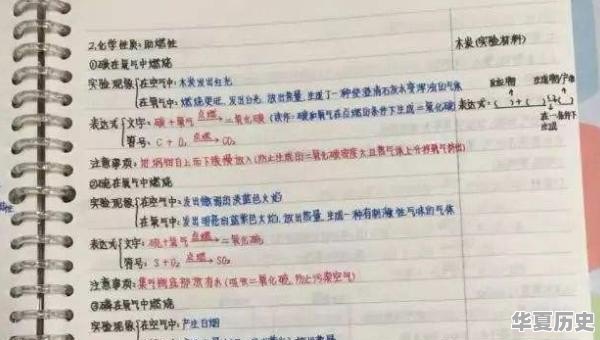 2.化学性质:助燃性
①碳在氧气中燃烧
木炭(实验材料)
实验现象 在空气中:木炭发出红光
在氧气中:燃烧更旺,发出白光,放出热量,生成了一种使澄清石灰水变浑浊的气体
反应物 生成物/产物
表达式 文字:碳+氧气 点燃→ 二氧化碳 (读作:碳和氧气在点燃的条件下生成二氧化碳)
表达式:( )+( ) → ( )
符号: C + O₂ 点燃→ CO₂
在一条件下
生成
注意事项:
自上而下缓慢放入(防止生成的二氧化碳密度大且热气体上升将氧气挤出)
②硫在氧气中燃烧
实验现象 在空气中:发出微弱的淡蓝色火焰
在氧气中:发出明亮的蓝紫色火焰,放出热量,生成一种有刺激性气味的气体
表达式 文字:硫+氧气 点燃→ 二氧化硫
符号: S + O₂ 点燃→ SO₂
注意事项:集气瓶底部放有水(吸收二氧化硫,防止污染空气)
③磷在氧气中燃烧
实验现象 在空气中:产生白烟
华夏历史